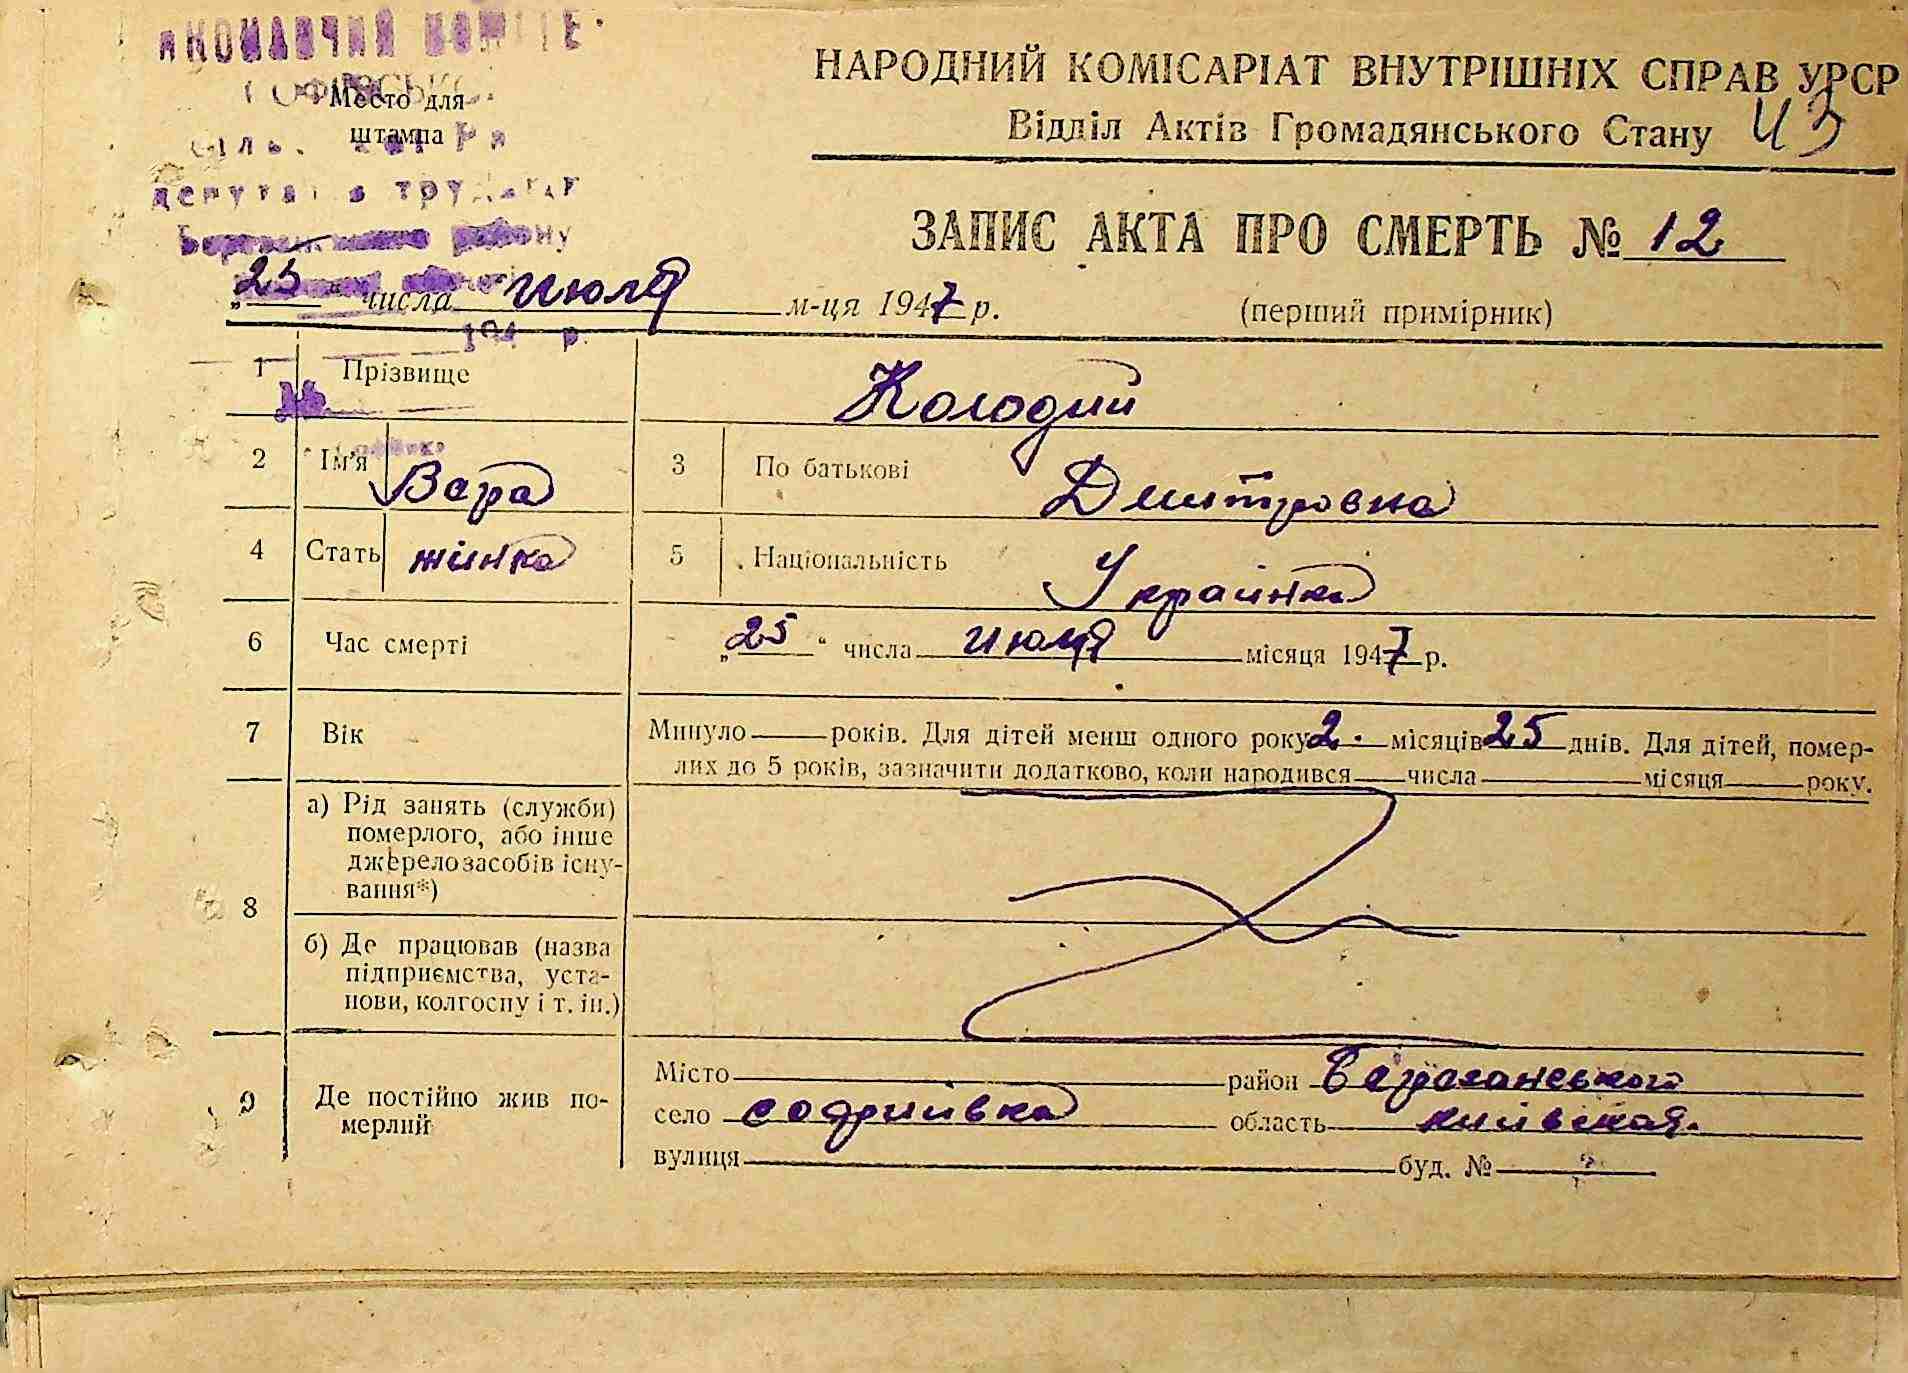 НАРОДНИЙ КОМІСАРІАТ ВНУТРІШНІХ СПРАВ УРСР
Відділ Актів Громадянського Стану 43
Место для
штампа
депутатів труд
району
194 р.
ЗАПИС АКТА ПРО СМЕРТЬ № 12
„25“ числа июля м-ця 1947 р.
(перший примірник)
1 Прізвище Колодий
2 Ім'я Вера 3 По батькові Дмитровна
4 Стать жінка 5 Національність Украинка
6 Час смерті „25“ числа июля місяця 1947 р.
7 Вік Минуло років. Для дітей менш одного року 2. місяців 25 днів. Для дітей, помер-
лих до 5 років, зазначити додатково, коли народився числа місяця року.
8 а) Рід занять (служби)
померлого, або інше
джерело засобів існу-
вання*)
б) Де працював (назва
підприємства, уста-
нови, колгоспу і т. ін.)
9 Де постійно жив по-
мерлий
Місто район Березанського
село софиивка область киивская.
вулиця буд. №